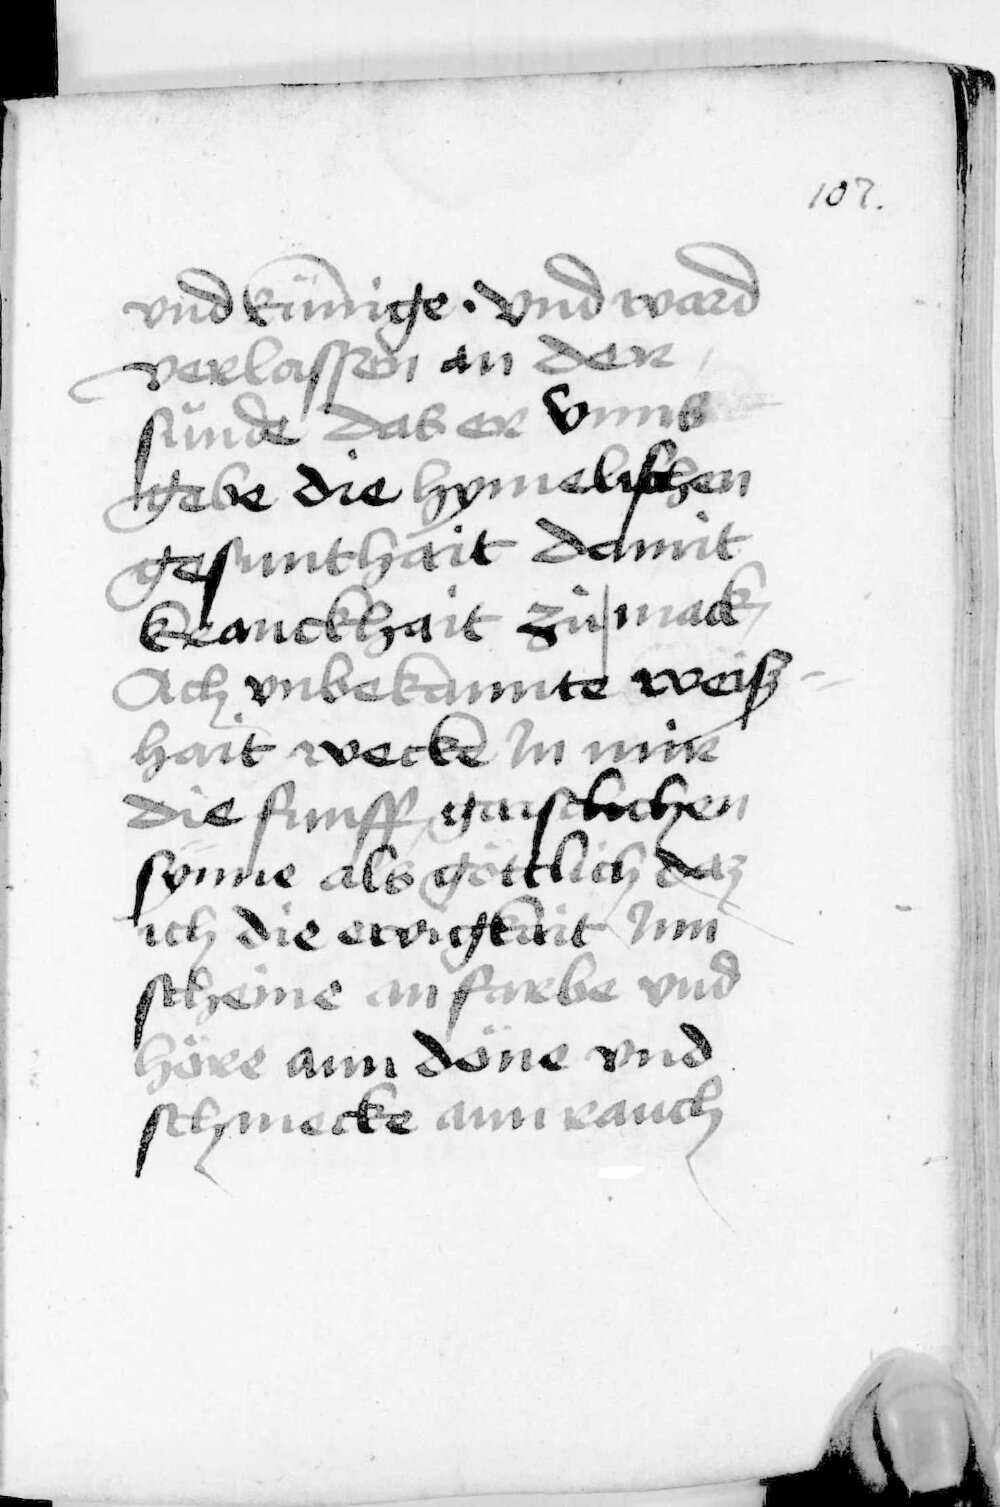 107.
vnd künige . vnd ward
verlassen an der
sünde das er vnns
gebe die hymelischen
gesunthait damit
kranckhait zů mack
Ach vnbekannte weiß-
hait wecke In mir
die funff gaistlichen
synne als göttlich daz
ich die ewigkait Inn
scheine an farbe vnd
höre ann döne vnd
schmecke ann rauch